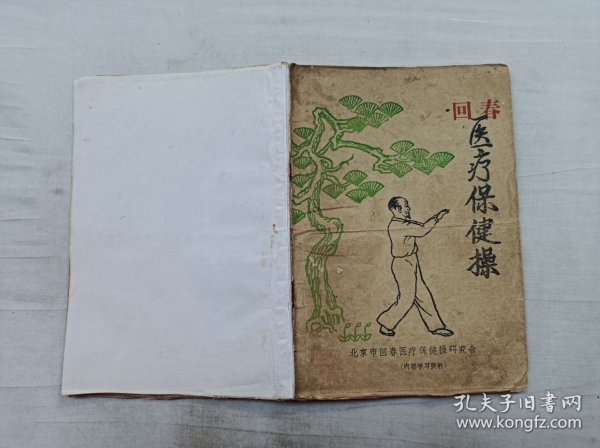 回春
医疗保健操
北京市回春医疗保健操研究会
(内部学习资料)
孔夫子旧书网
www.kongfz.com